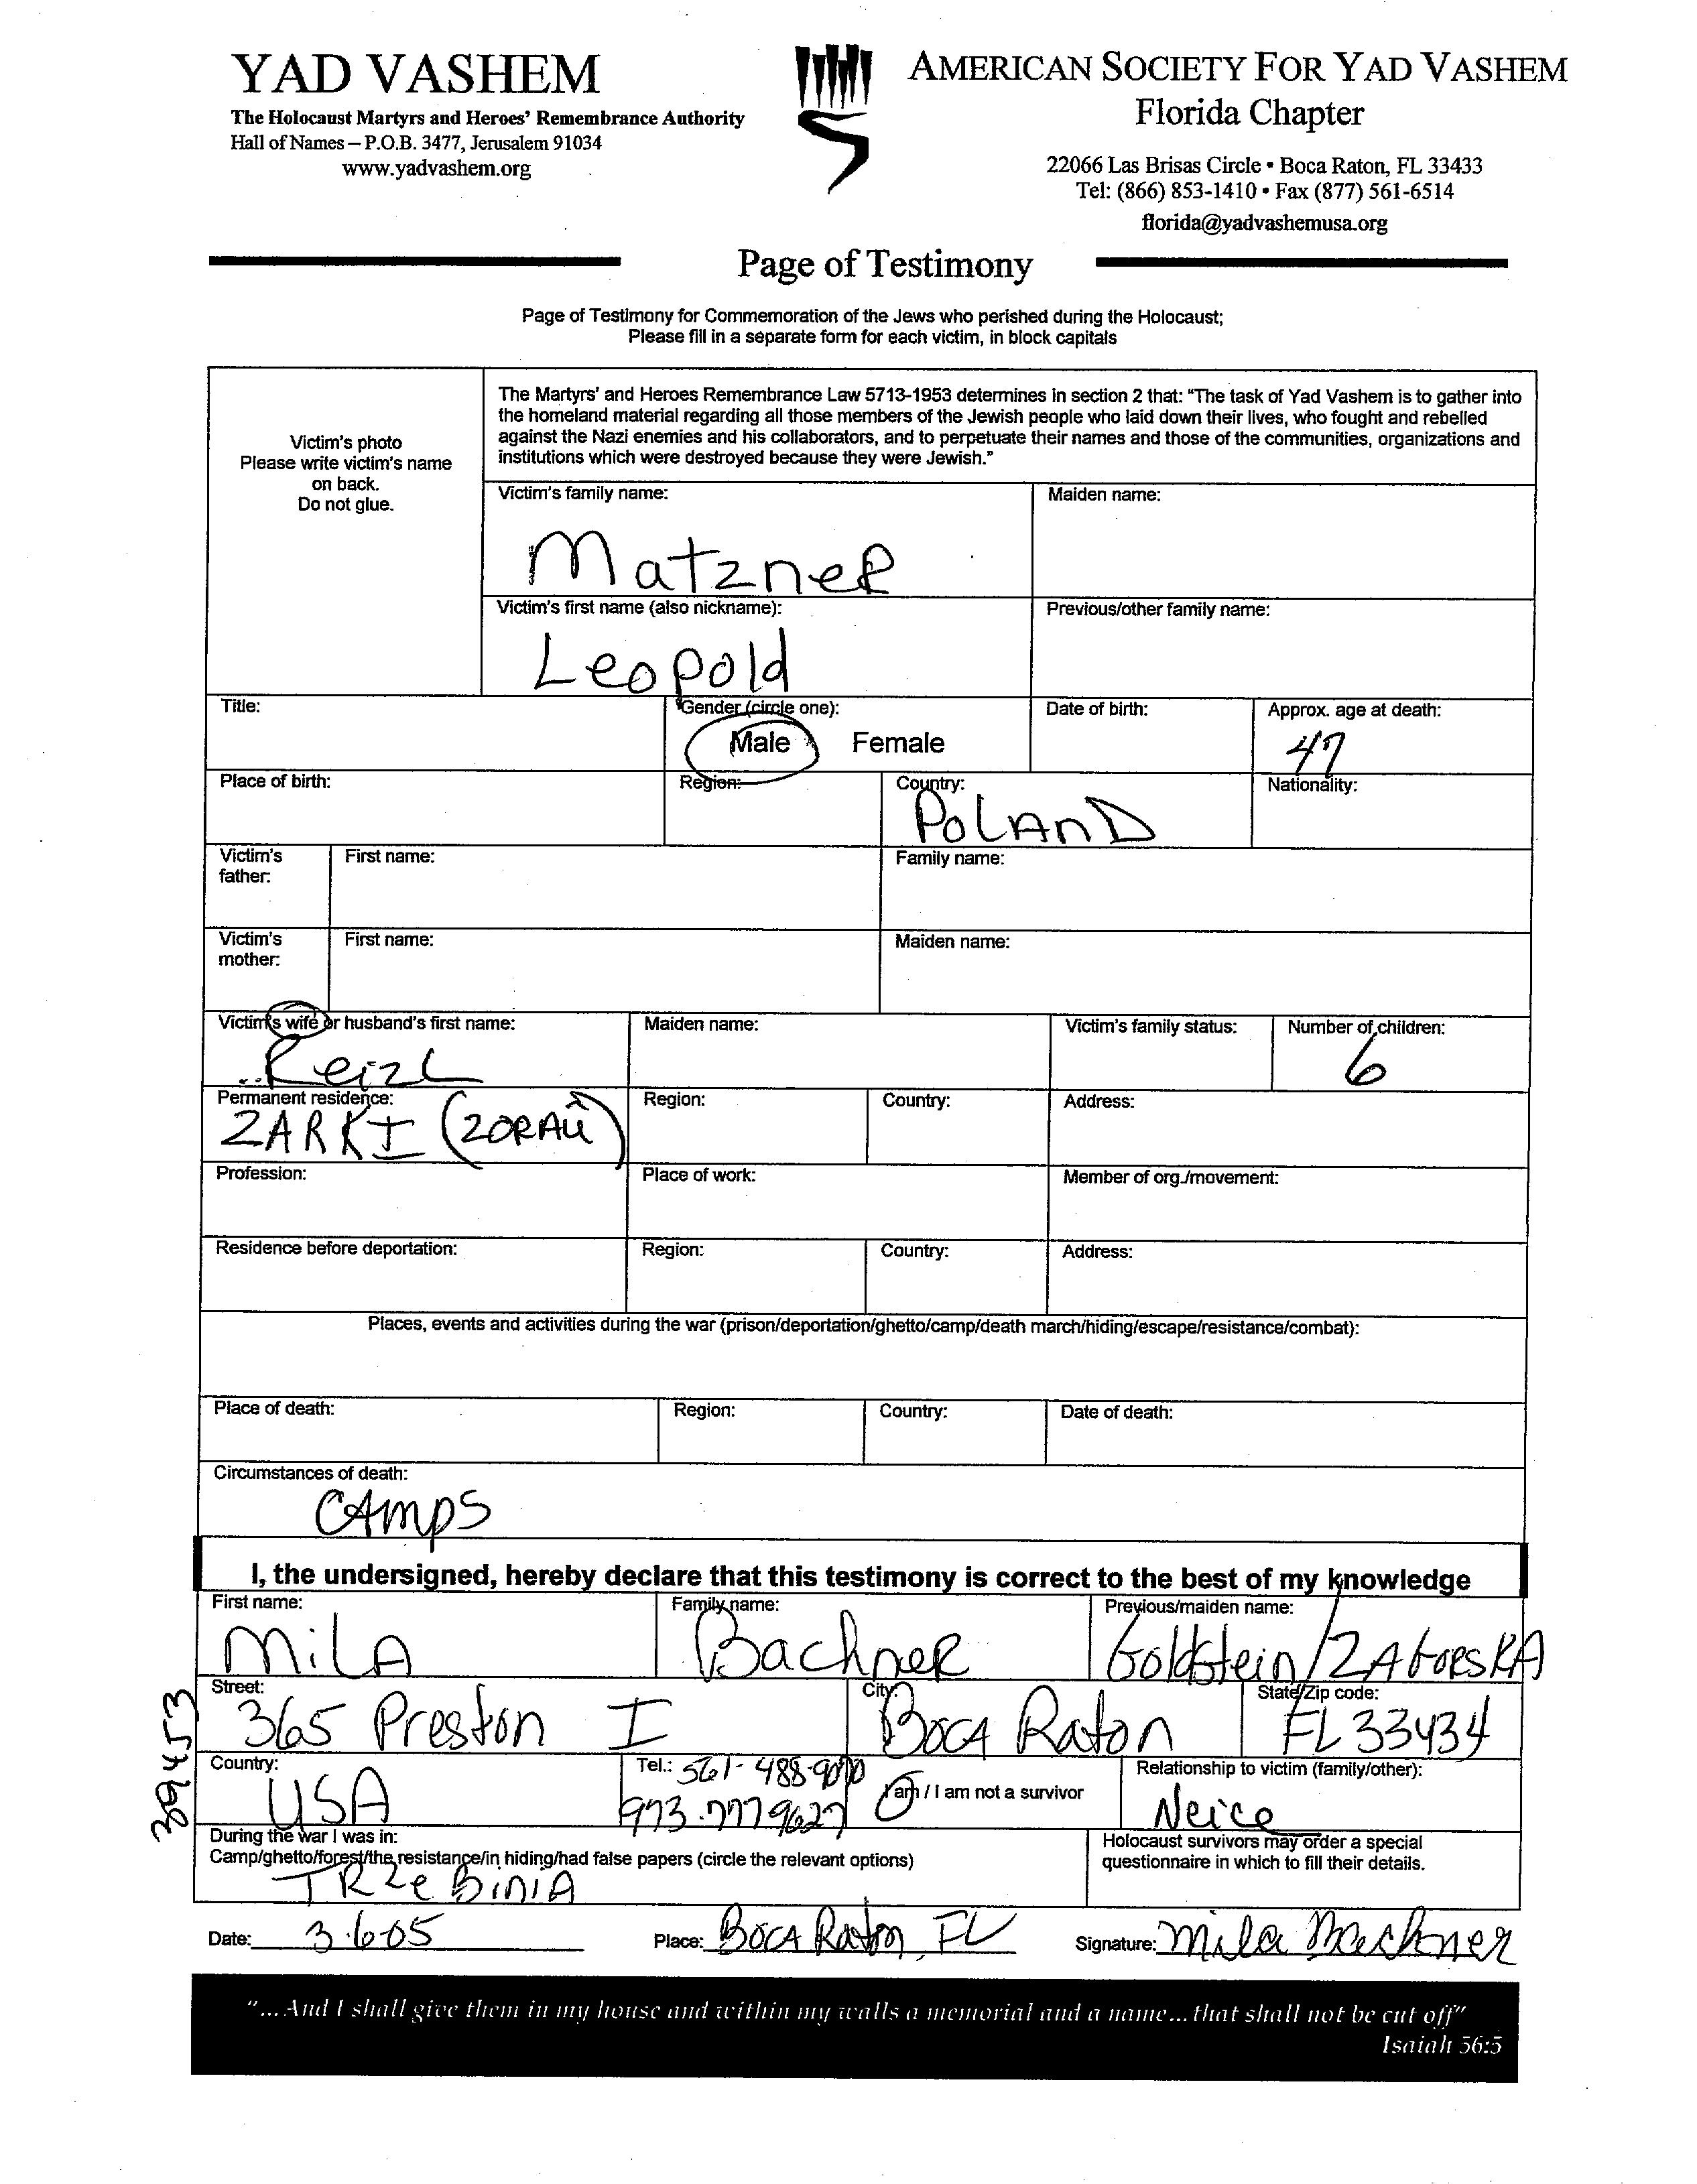 YAD VASHEM
The Holocaust Martyrs and Heroes' Remembrance Authority
Hall of Names – P.O.B. 3477, Jerusalem 91034
www.yadvashem.org
AMERICAN SOCIETY FOR YAD VASHEM
Florida Chapter
22066 Las Brisas Circle • Boca Raton, FL 33433
Tel: (866) 853-1410 • Fax (877) 561-6514
florida@yadvashemusa.org
Page of Testimony
Page of Testimony for Commemoration of the Jews who perished during the Holocaust;
Please fill in a separate form for each victim, in block capitals
Victim's photo
Please write victim's name
on back.
Do not glue.
The Martyrs' and Heroes Remembrance Law 5713-1953 determines in section 2 that: "The task of Yad Vashem is to gather into
the homeland material regarding all those members of the Jewish people who laid down their lives, who fought and rebelled
against the Nazi enemies and his collaborators, and to perpetuate their names and those of the communities, organizations and
institutions which were destroyed because they were Jewish."
Victim's family name: Maiden name:
Matzner
Victim's first name (also nickname): Previous/other family name:
Leopold
Title: Gender (circle one): Date of birth: Approx. age at death:
Male Female 47
Place of birth: Region: Country: Nationality:
POLAND
Victim's father: First name: Family name:
Victim's mother: First name: Maiden name:
Victim's wife or husband's first name: Maiden name: Victim's family status: Number of children:
Reizl 6
Permanent residence: Region: Country: Address:
ZARKI (ZORAU)
Profession: Place of work: Member of org./movement:
Residence before deportation: Region: Country: Address:
Places, events and activities during the war (prison/deportation/ghetto/camp/death march/hiding/escape/resistance/combat):
Place of death: Region: Country: Date of death:
Circumstances of death:
CAMPS
I, the undersigned, hereby declare that this testimony is correct to the best of my knowledge
First name: Family name: Previous/maiden name:
MiLA Bachner Goldstein/ZAGORSKA
Street: City: State/Zip code:
365 Preston I Boca Raton FL 33434
Country: Tel.: 561-488-9070 I am / I am not a survivor Relationship to victim (family/other):
USA 973-7779627 Neice
During the war I was in:
Camp/ghetto/forest/the resistance/in hiding/had false papers (circle the relevant options)
TRZeBiniA
Holocaust survivors may order a special
questionnaire in which to fill their details.
Date: 3.6.05 Place: Boca Raton, FL Signature: Mila Bachner
389453
"...And I shall give them in my house and within my walls a memorial and a name...that shall not be cut off"
Isaiah 56:5